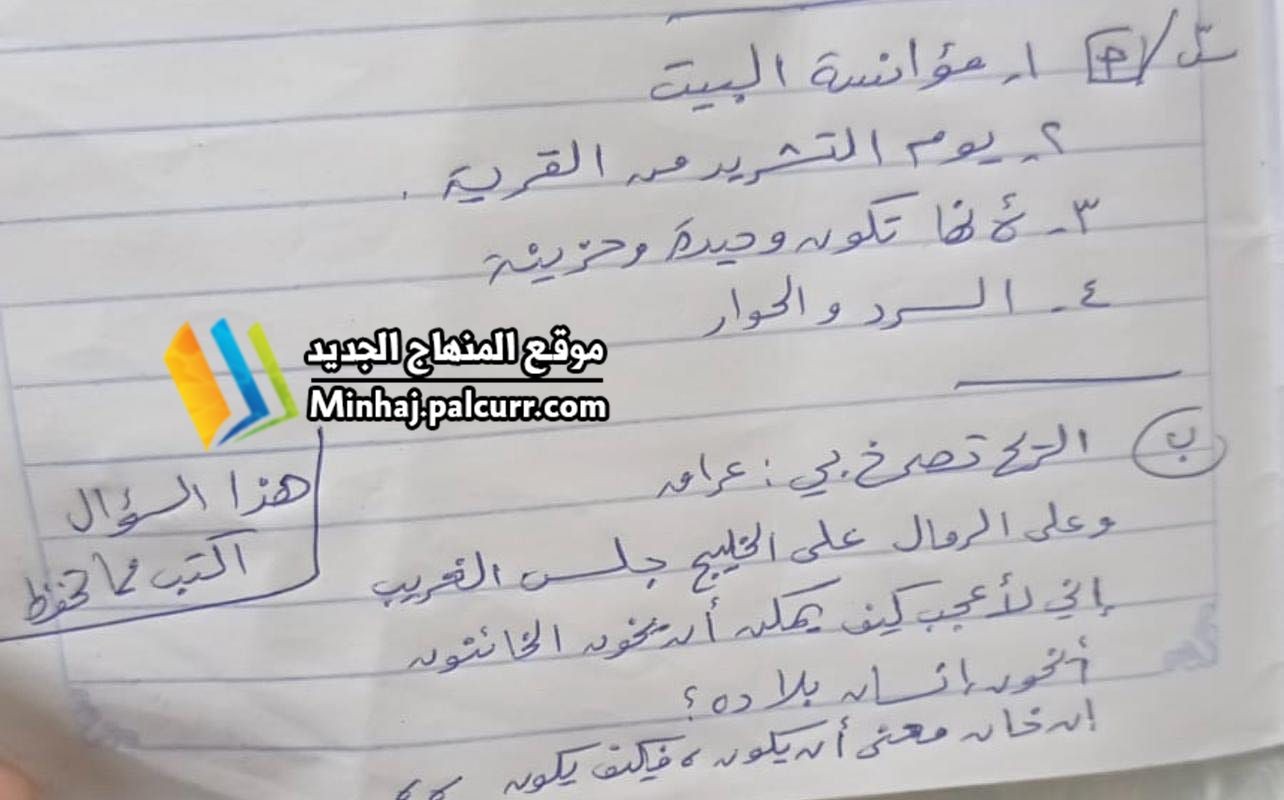 س/ أ ١. مؤانسة البيت
٢. يوم التشريد من القرية.
٣. لأنها تكون وحيدة وحزينة
٤. السرد والحوار
موقع المنهاج الجديد
Minhaj.palcurr.com
ب الريح تصرخ بي: عراق
وعلى الرمال على الخليج جلس الغريب
هذا السؤال
اكتب مما تحفظ
إني لأعجب كيف يمكن أن يخون الخائنون
أيخون إنسان بلاده؟
إن خان معنى أن يكون، فكيف يكون